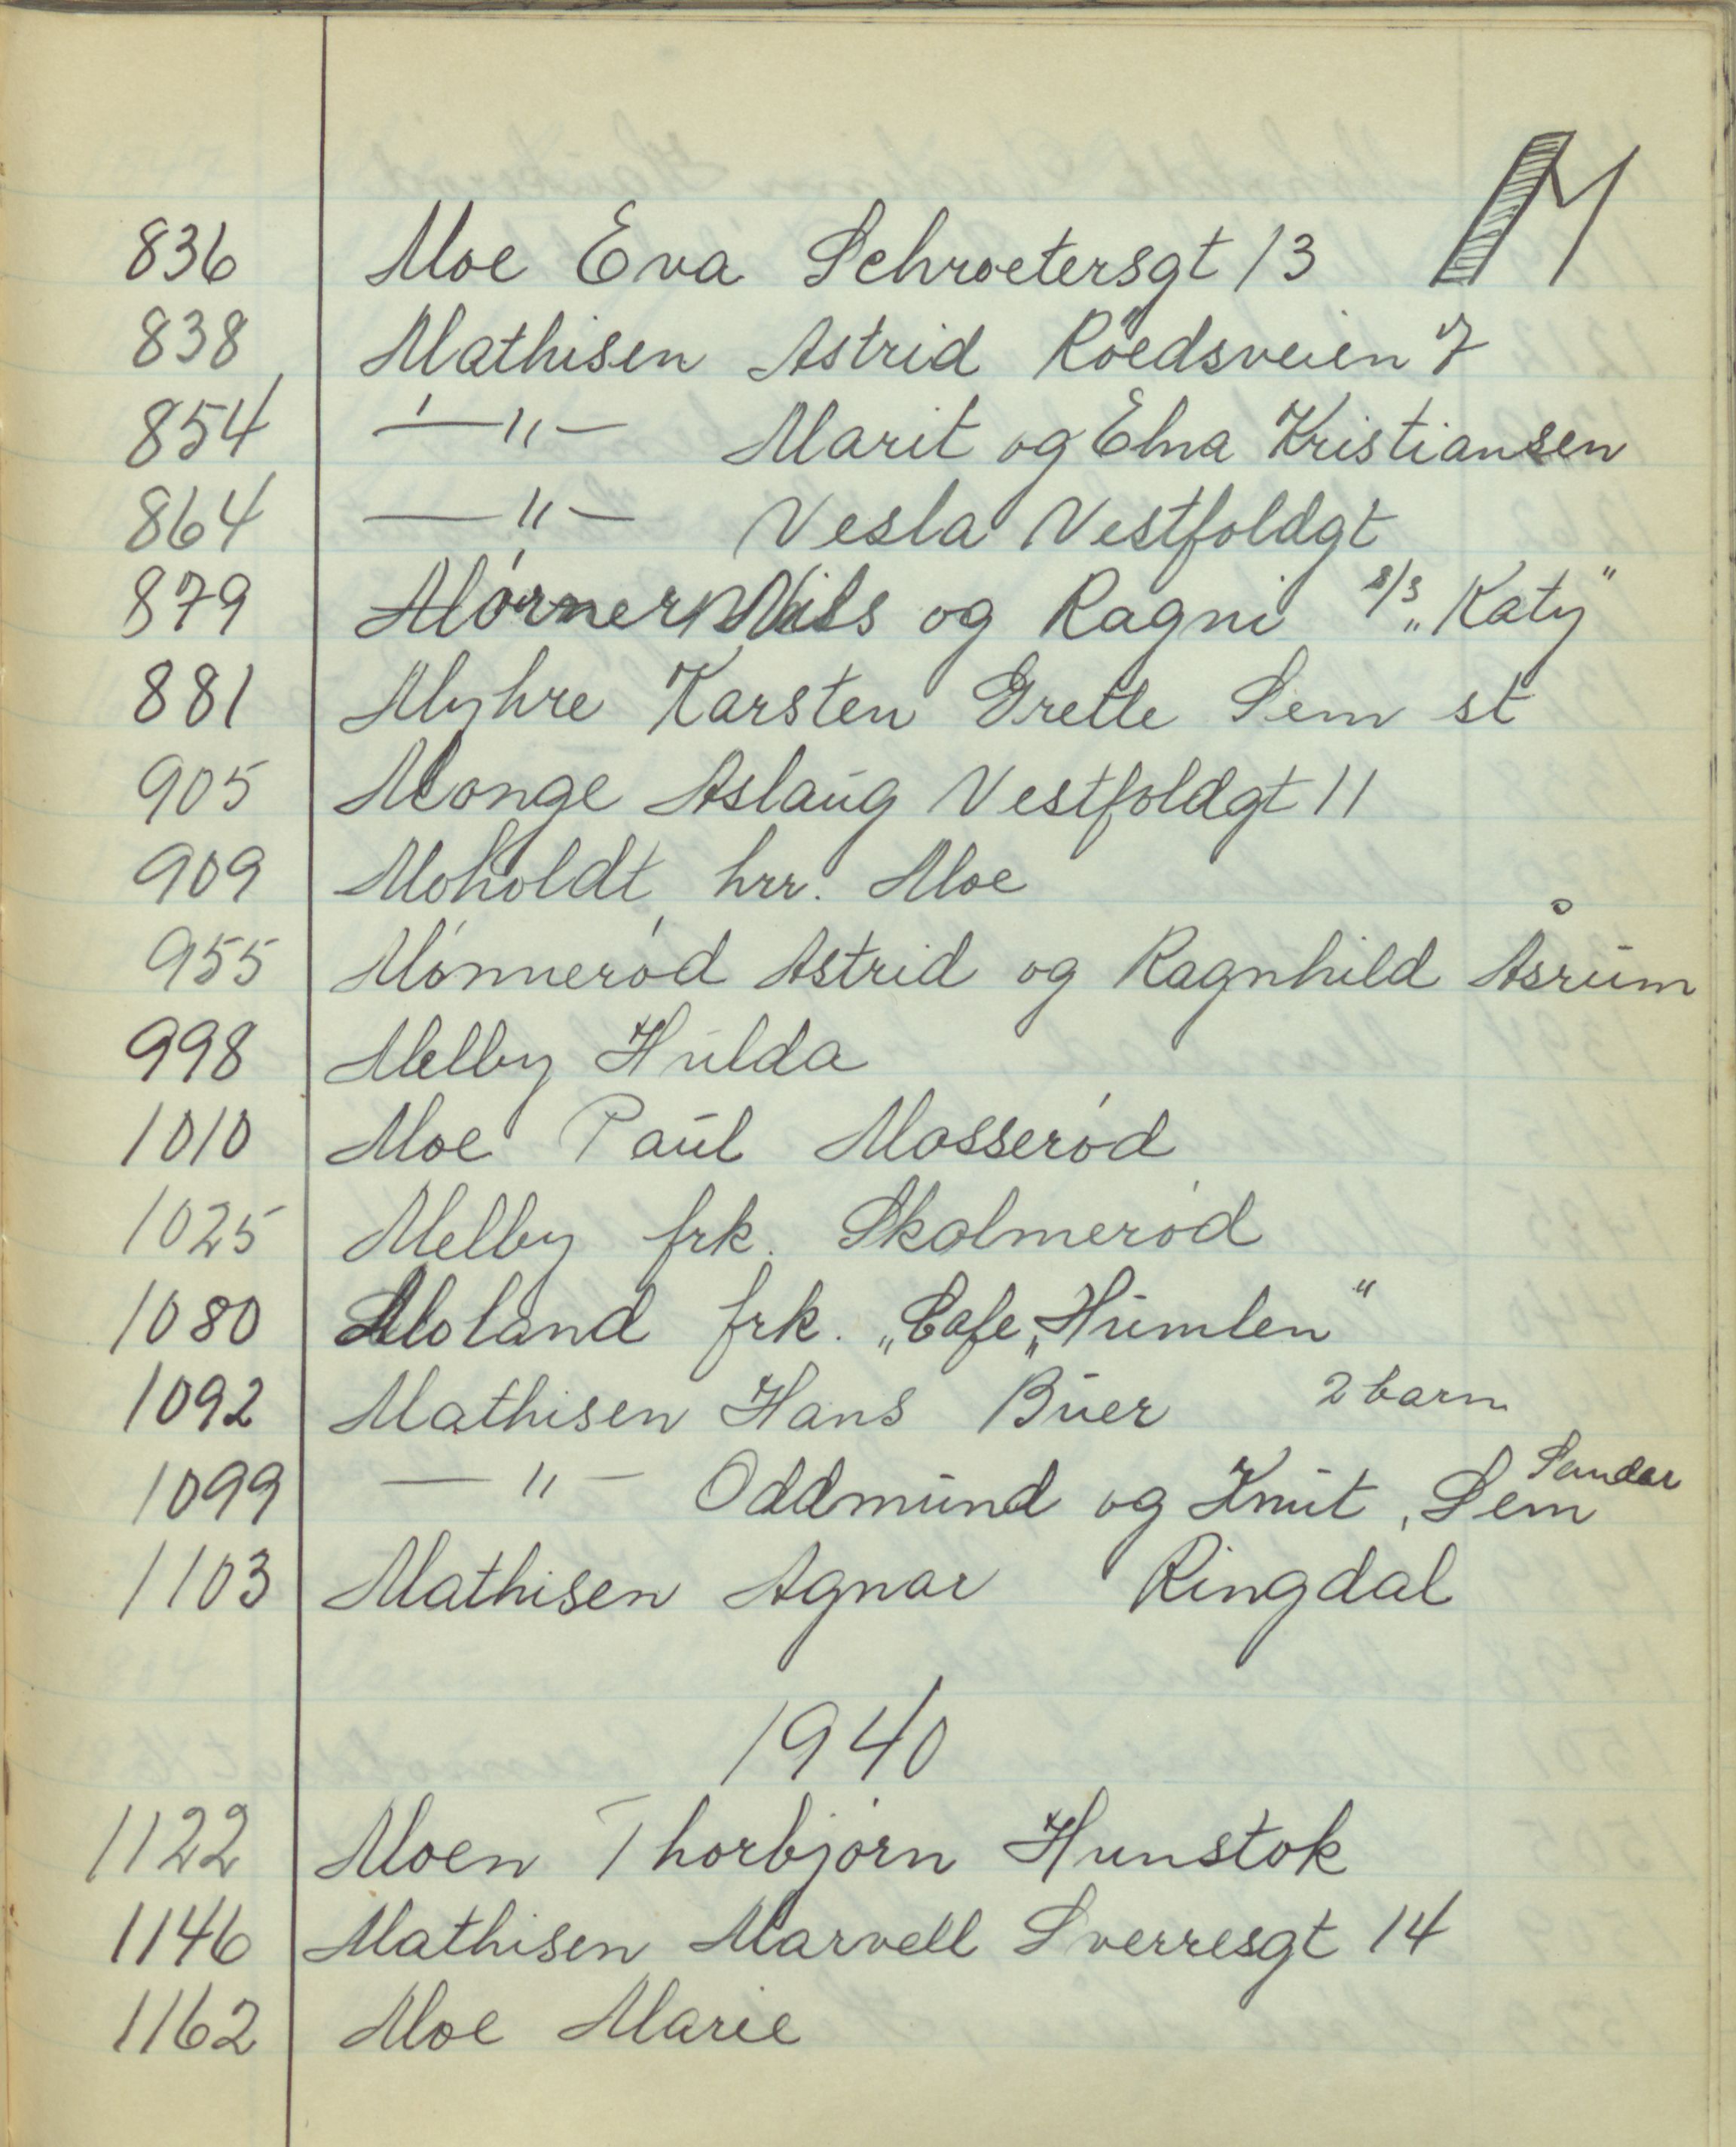 M
836 Moe Eva Schroetersgt 13
838 Mathisen Astrid Röedsveien 7
854 —"— Marit og Elna Kristiansen
864 —"— Vesla Vestfoldgt
879 Mórner Nils og Ragni s/s „Katy"
881 Myhre Karsten Grette Sem st
905 Monge Aslaug Vestfoldgt 11
909 Moholdt hrr. Moe
955 Mónneród Astrid og Ragnhild Åsrum
998 Melby Hulda
1010 Moe Paul Mosseród
1025 Melby frk. Skolmeród
1080 Moland frk. „Cafe „Humlen"
1092 Mathisen Hans Buer 2 barn
1099 —"— Oddmund og Knut, Sem Sandar
1103 Mathisen Agnar Ringdal
1940
1122 Moen Thorbjórn Hunstok
1146 Mathisen Marvell Sverresgt 14
1162 Moe Marie